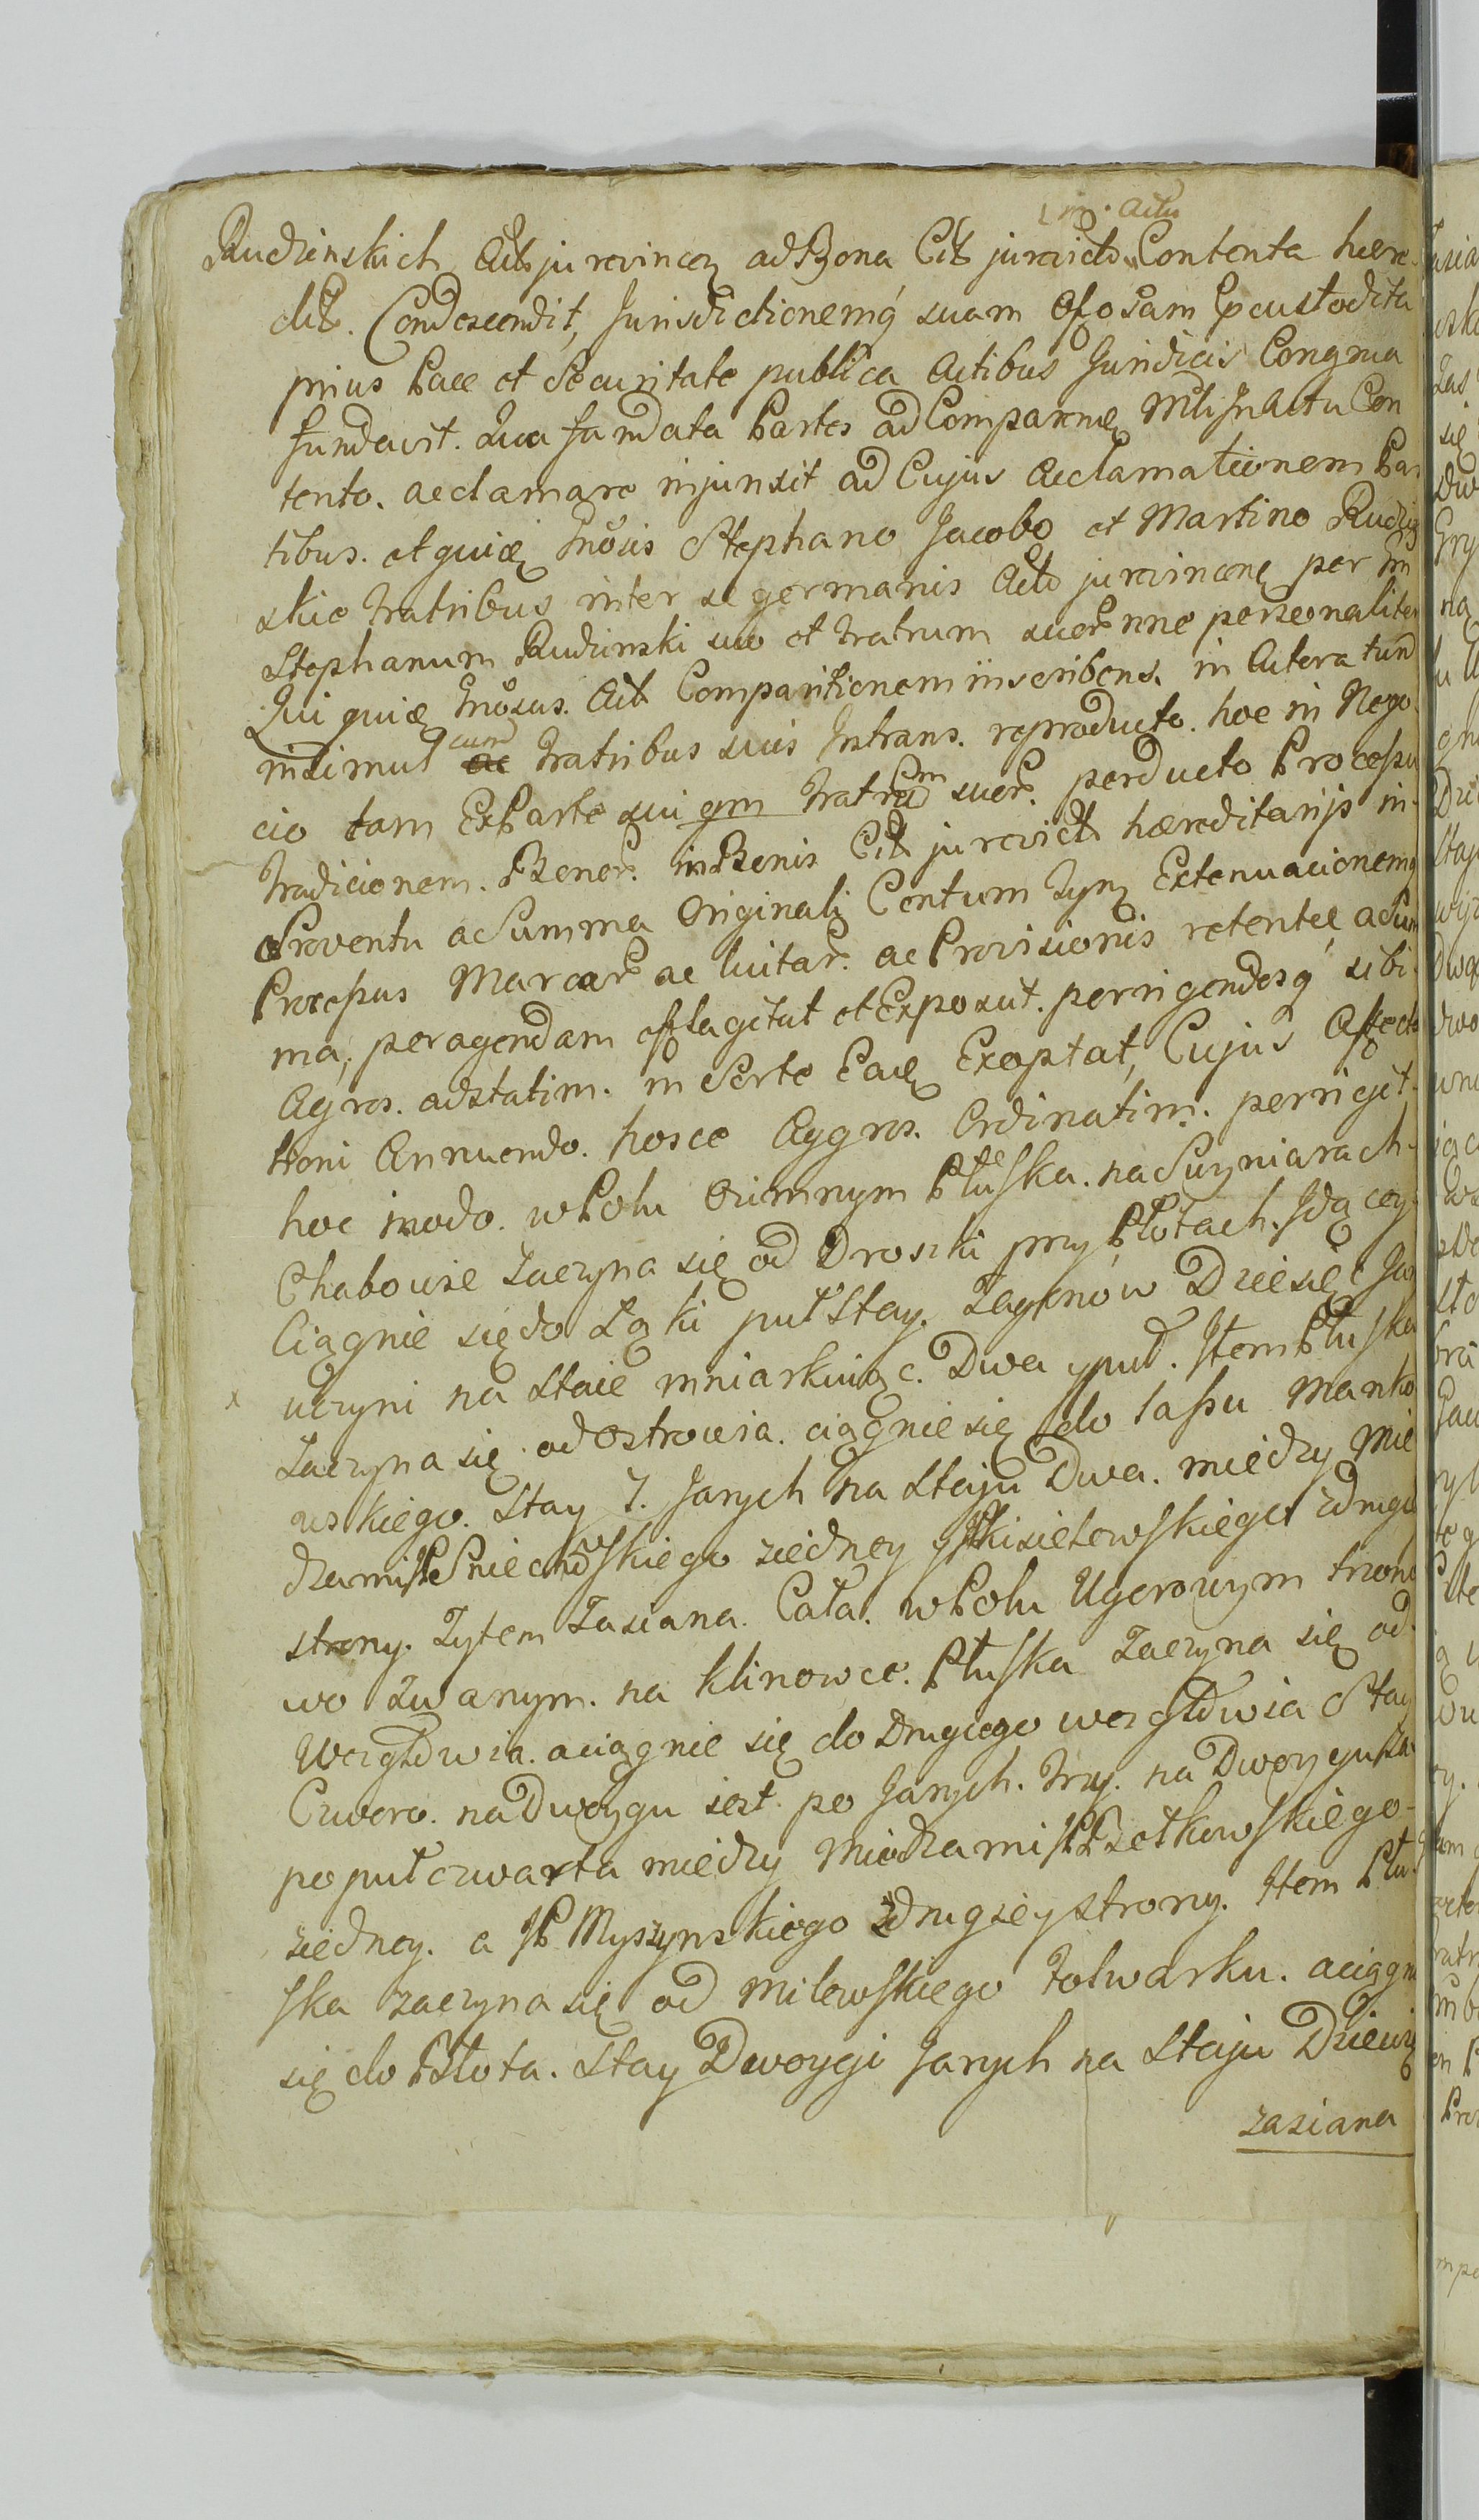 in Actu
Rudzinskich Act jurevincen ad Bona Cit jurevicto Contenta hære
dit. Condescendit, Jurisdictionemq́ suam Offosam Excustodita
prius Pace et Securitate publica Actibus Juridicis Congrua
fundavit. Qua fundata Partes ad Comparend Mtli In Actu Con
tento. acclamare injunxit ad Cujus acclamationem Par
tibus. et quidę Gnosis Stephano Jacobo et Martino Rudzię
skie fratribus inter se germanis Act jurevincenę per Gn
Stephanum Rudzinski suo et fratrum suor nne personaliter
Qui quidę Gnosus. Act Comparitionem inscribens. in Actora tund
insimul cum fratribus suis Intrans. reproducto. hoc in Nego
cio tam Ex Parte sui qm fratrum suor. perducto Processu
tradicionem. Bonor. in Bonis Cit jurevict hæreditarijs in
Proventu a Summa Originali Centum Tynf Extenuacionemq
Processus Marcar ac luitar. ac Provisionis retentę a Sum
ma, peragendam efflagitat et Exposcit. perrigendosq́ sibi
Agros. adstatim. in Sorte Eadę Exoptat, Cujus Affecta
tioni Annuendo. hosce Aggros. Ordinatim. perriget
hoc modo. w Polu Ozimnym Płuska. na Suzniarach
Chabowie Zaczyna się od Drozki przy Płotach. Idącey
Ciągnie się do Łąki puł Stay. Zagonow Dziesięc Jar
uczyni na Staie mniarkuiąc. Dwa y puł. Item Płuska
x
Zaczyna się od Ostrowia. ciągnie się do lassu Manko
wskiego. Stay 7. Jarych na Staju Dwa. między Mie
dzami JP Sniechowskiego ziedney y JP Kisielewskiego zdrugi
strony. Zytem Zasiana. Cała. w Polu Ugorowym trzono
wo zwanym. na Klinowce. Płuska Zaczyna się od
Wezgłowia. aciągnie się do Drugiego wezgłowia Stay
Czworo. na Dwoygu iest po Jarych. trzy. na Dwoygu zas
po puł czwarta między Miedzami JP Zetkowskiego
ziedney. a JP Myszynskiego zdrugiey strony. Item Płu
ska zaczyna się od Milewskiego folwarku. aciągni
się do Błota. Stay Dwoygi Jarych na Staju Dziewię
zasiana